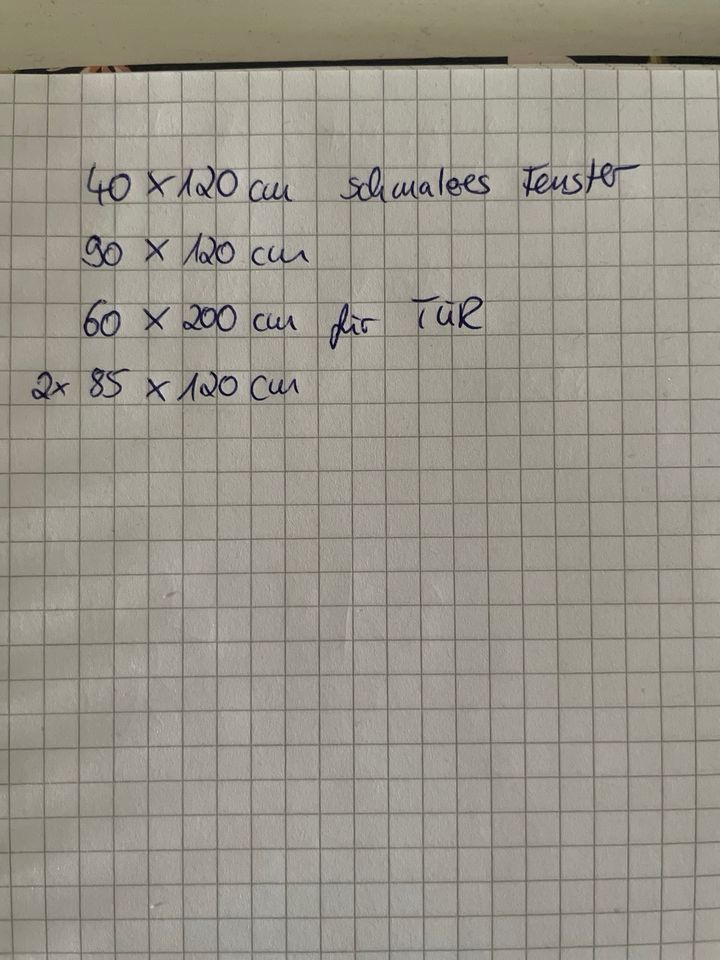 40 x 120 cm schmales Fenster
90 x 120 cm
60 x 200 cm für TÜR
2x 85 x 120 cm